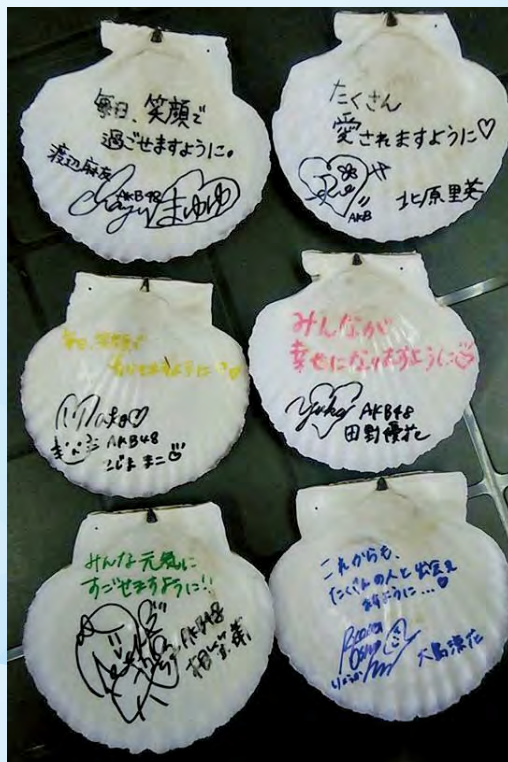 毎日、笑顔で
過ごせますように。
渡辺麻友
AKB48
まゆゆ
たくさん
愛されますように♡
AKB
北原里英
毎日、笑顔で
ますように
Mako♡
AKB48
こじま まこ
みんなが
幸せになりますように
yuka
AKB48
田野優花
みんな元気に
すごせますように!!
AKB48
相笠萌
これからも、
たくさんの人と出会え
ますように...♡
Ryoka
Oshima
りょうか
大島涼花